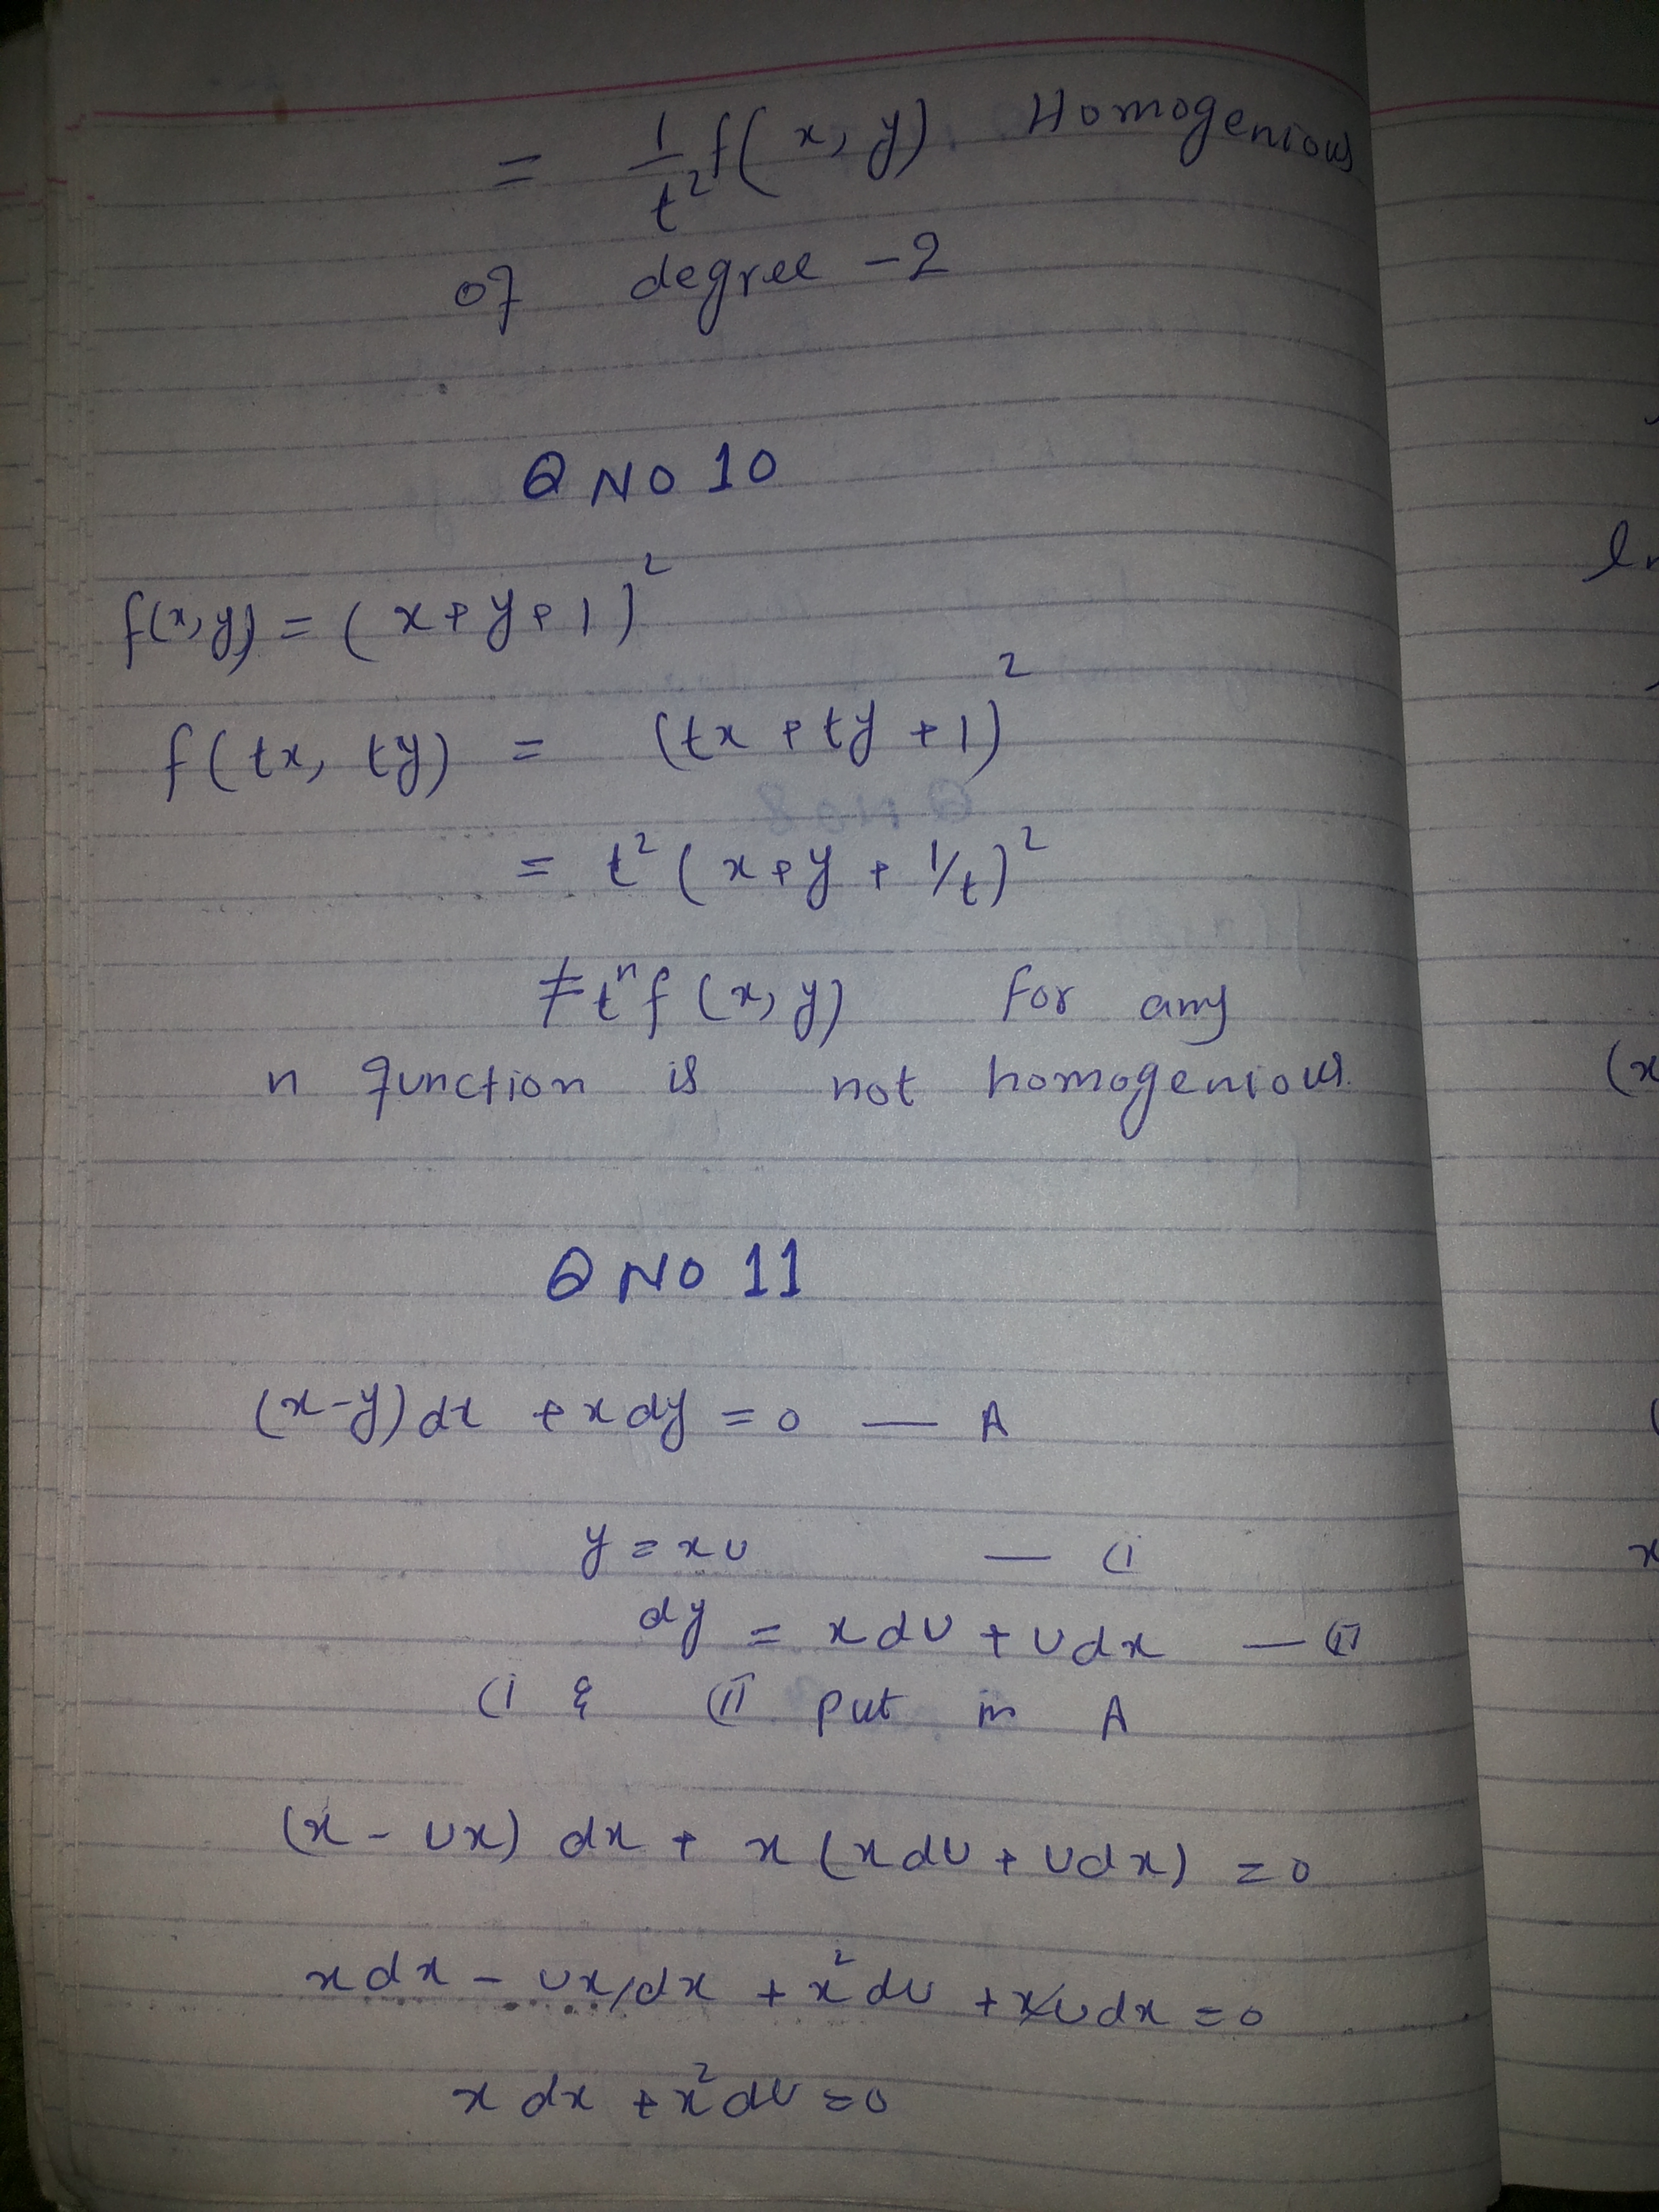 = 1/t² f(x, y). Homogenious
of degree -2
Q NO 10
f(x,y) = (x+y+1)²
f(tx, ty) = (tx + ty + 1)²
= t² (x+y + 1/t)²
≠ tⁿ f(x, y) for any
n function is not homogenious.
Q NO 11
(x-y)dx + x dy = 0 — A
y = xu — (i
dy = x du + u dx — (ii
(i & (ii put in A
(x - ux) dx + x (x du + u dx) = 0
x dx - ux dx + x² du + xu dx = 0
x dx + x² du = 0